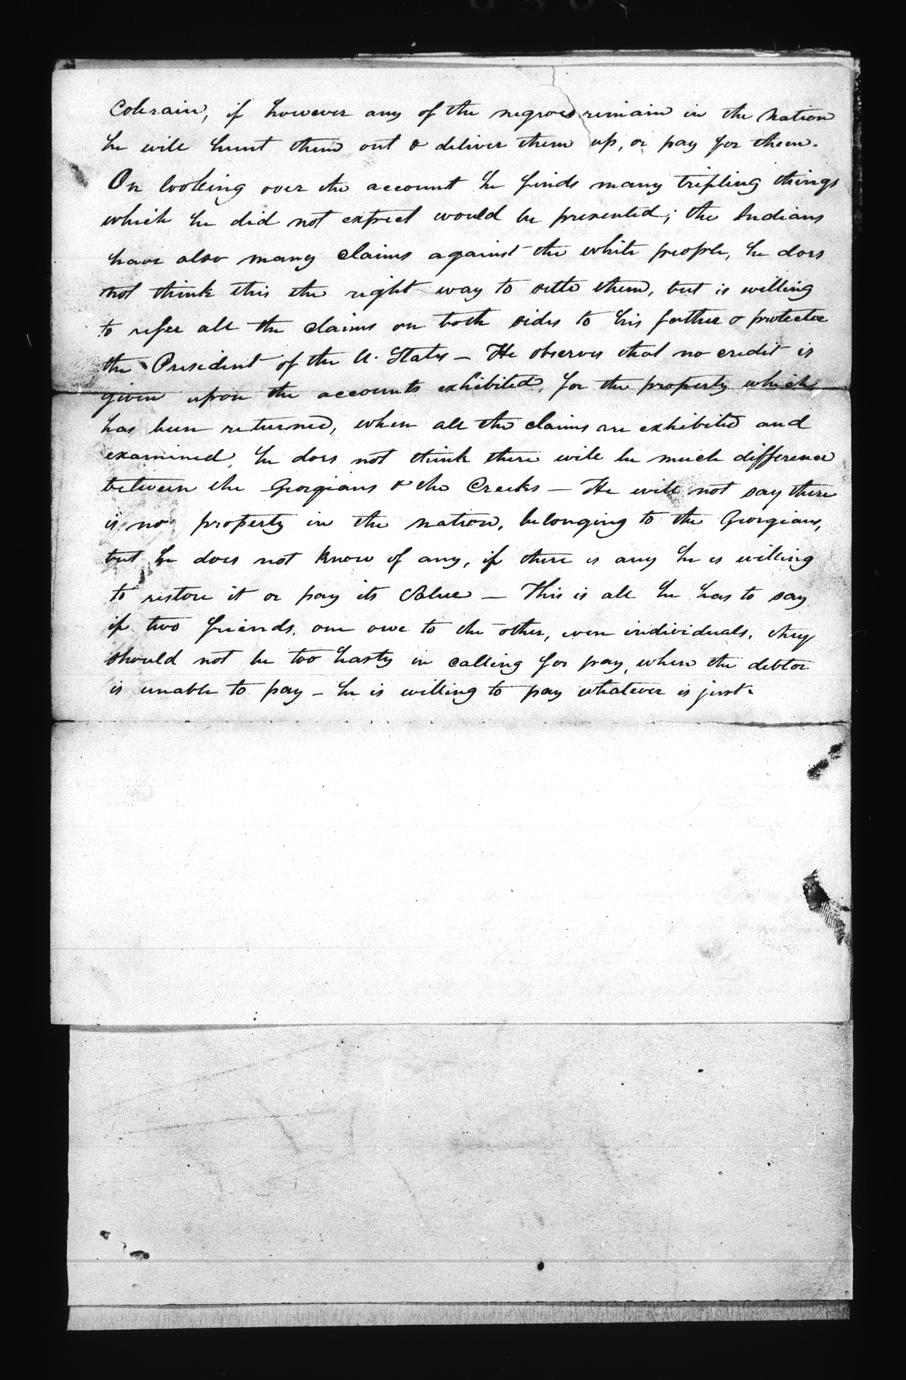 Colerain, if however any of the negroes remain in the nation
he will hunt them out & deliver them up, or pay for them.
On looking over the account he finds many trifling things
which he did not expect would be presented; the Indians
have also many claims against the white people, he does
not think this the right way to settle them, but is willing
to refer all the claims on both sides to his father & protector
the President of the U. States — He observes that no credit is
given upon the accounts exhibited, for the property which
has been returned, when all the claims are exhibited and
examined, he does not think there will be much difference
between the Georgians & the Creeks — He will not say there
is no property in the nation, belonging to the Georgians,
but he does not know of any, if there is any he is willing
to restore it or pay its value — This is all he has to say
if two friends, one owe to the other, even individuals, they
should not be too hasty in calling for pay, when the debtor
is unable to pay — he is willing to pay whatever is just.